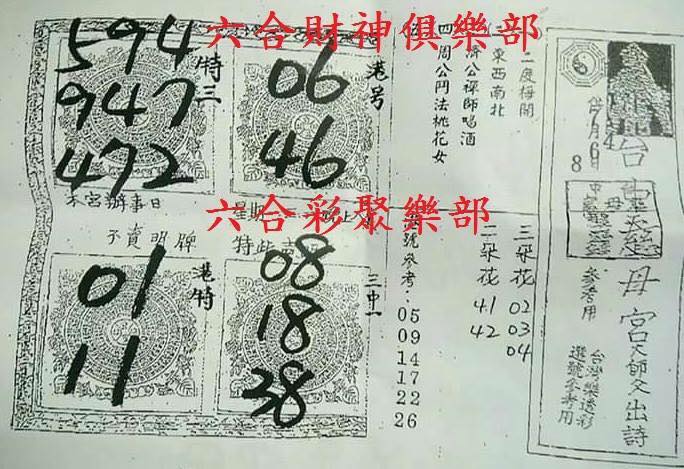 六合財神俱樂部
594
947
472
特三
06
46
港号
本宮辦事日
六合彩聚樂部
不賣明牌
01
11
港特
08
18
38
三中一
二度梅開
東西南北
濟公禪師喝酒
四周公鬥法桃花女
號參考:
05
09
14
17
22
26
三朵花 02 03 04
二朵花 41 42
7月6日
8
母宮天師爻出詩
參考用
台灣樂透彩
選號參考用